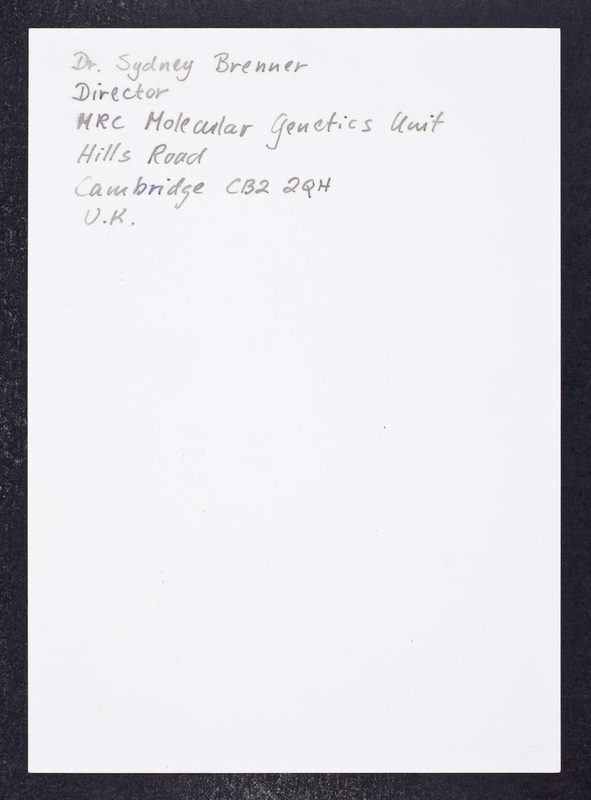 Dr. Sydney Brenner
Director
MRC Molecular Genetics Unit
Hills Road
Cambridge CB2 2QH
U.K.